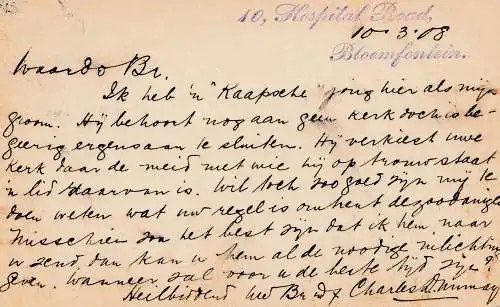 40, Hospital Road,
10.3.08
Bloemfontein.
Waarde Br.
Ik heb 'n "Kaapsche" jong hier als mijn
groom. Hij behoort nog aan geen kerk doch is be-
geerig ergens aan te sluiten. Hij verkiest uwe
kerk daar de meid met wie hij op trouw staat
'n lid daarvan is. Wil toch zoo goed zijn mij te
doen weten wat uw regel is omtrent dezoodanigen
Misschien zou het best zijn dat ik hem naar
u zend dan kan u hem al de noodige inlichting
geven. Wanneer zal voor u de beste tijd zijn?
Heilbiddend Uw Br. Charles Murray